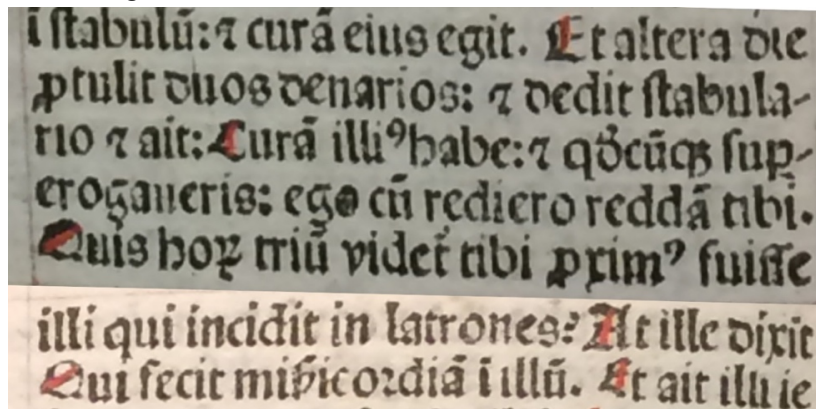 ī ſtabulū: ⁊ curā eius egit. Et altera die
ꝓtulit duos denarios: ⁊ dedit ſtabula-
rio ⁊ ait: Curā illiꝰ habe: ⁊ qđcūqꝫ ſuꝑ-
erogaueris: ego cū rediero reddā tibi.
Quis hoꝝ triū videt᷑ tibi ꝓximꝰ fuiſſe
illi qui incidit in latrones? At ille dixit
Qui fecit miẜicordiā ī illū. Et ait illi ie